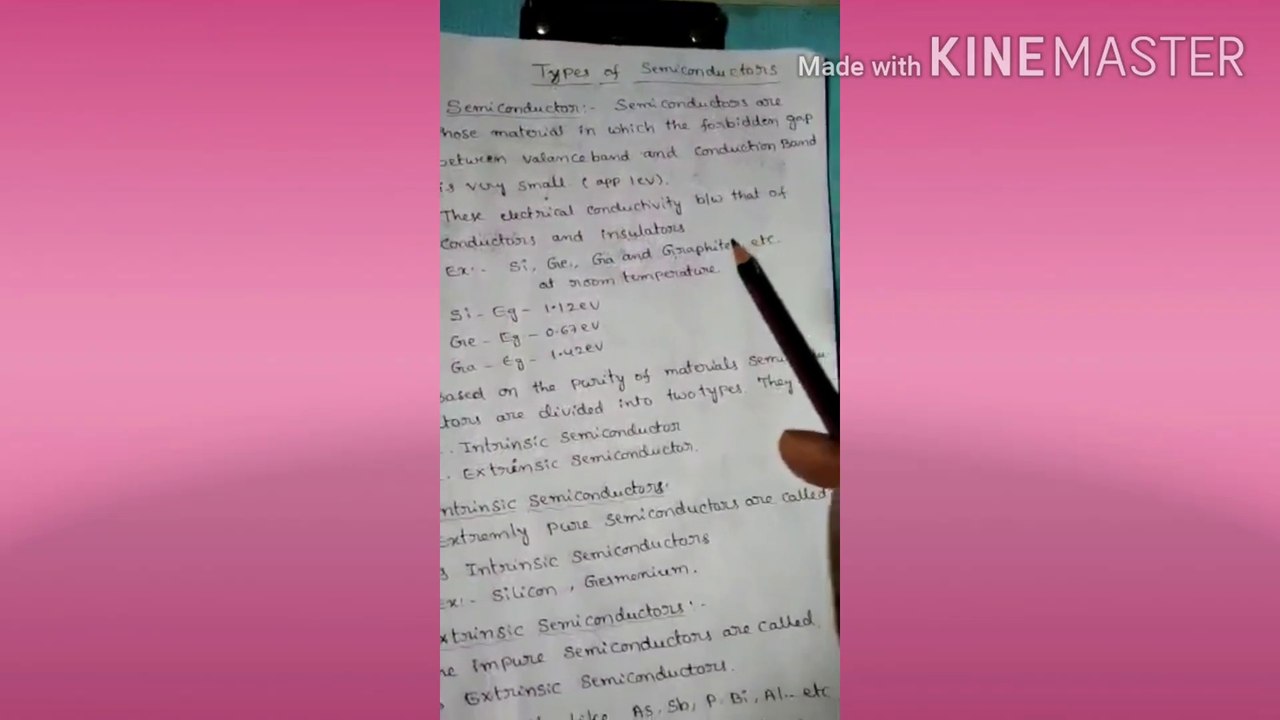 Made with KINEMASTER
Types of Semiconductors
Semiconductor:- Semiconductors are
hose material in which the forbidden gap
between valance band and conduction Band
is very small (app 1ev).
These electrical conductivity b/w that of
conductors and insulators
Ex:- Si, Ge, Ga and Graphite etc.
at room temperature.
Si - Eg - 1.12ev
Ge - Eg - 0.67ev
Ga - Eg - 1.42ev
based on the purity of materials semi
ctors are divided into two types. They
Intrinsic semiconductor
Extrinsic semiconductor.
ntrinsic semiconductors.
Extremly pure semiconductors are called
s Intrinsic semiconductors
Ex:- Silicon, Germenium.
xtrinsic semiconductors:-
he impure semiconductors are called
Extrinsic semiconductors.
like As, Sb, P, Bi, Al.. etc